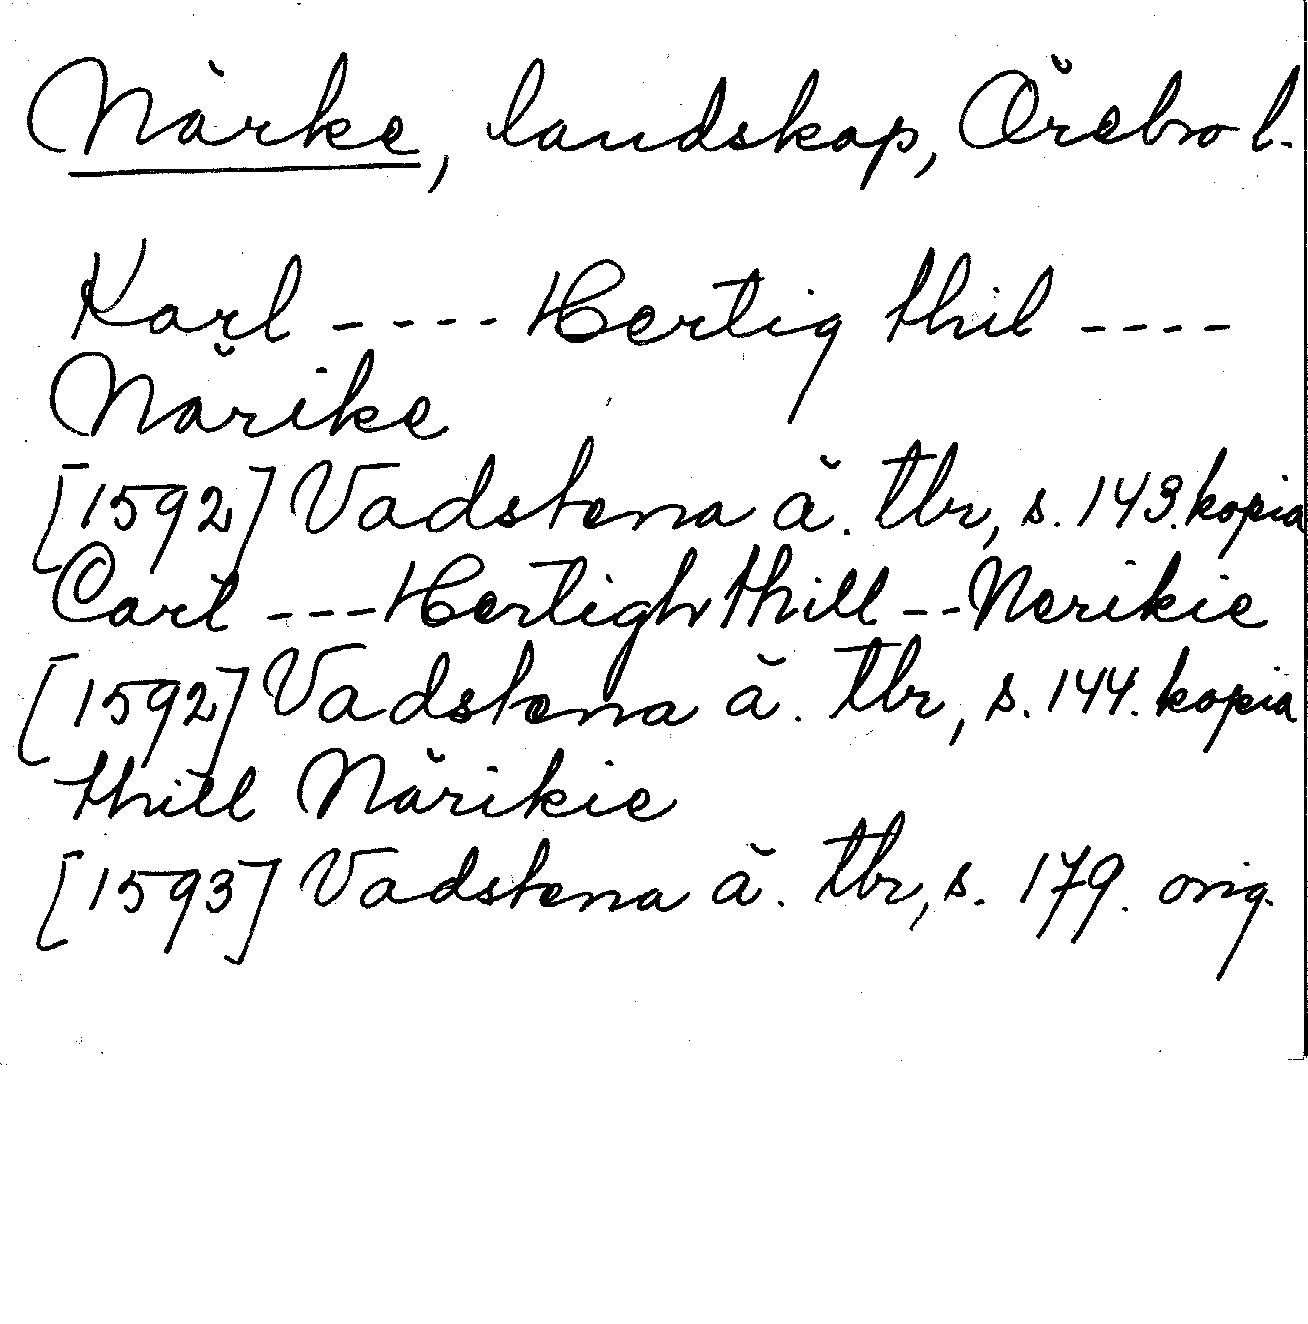 Närke, landskap, Örebro l.
Karl ---- Hertig thil ----
Närike
[1592] Vadstena ä. tbr, s. 143. kopia
Carl --- Hertigh thill -- Nerikie
[1592] Vadstena ä. tbr, s. 144. kopia
thill Närikie
[1593] Vadstena ä. tbr, s. 179. orig.